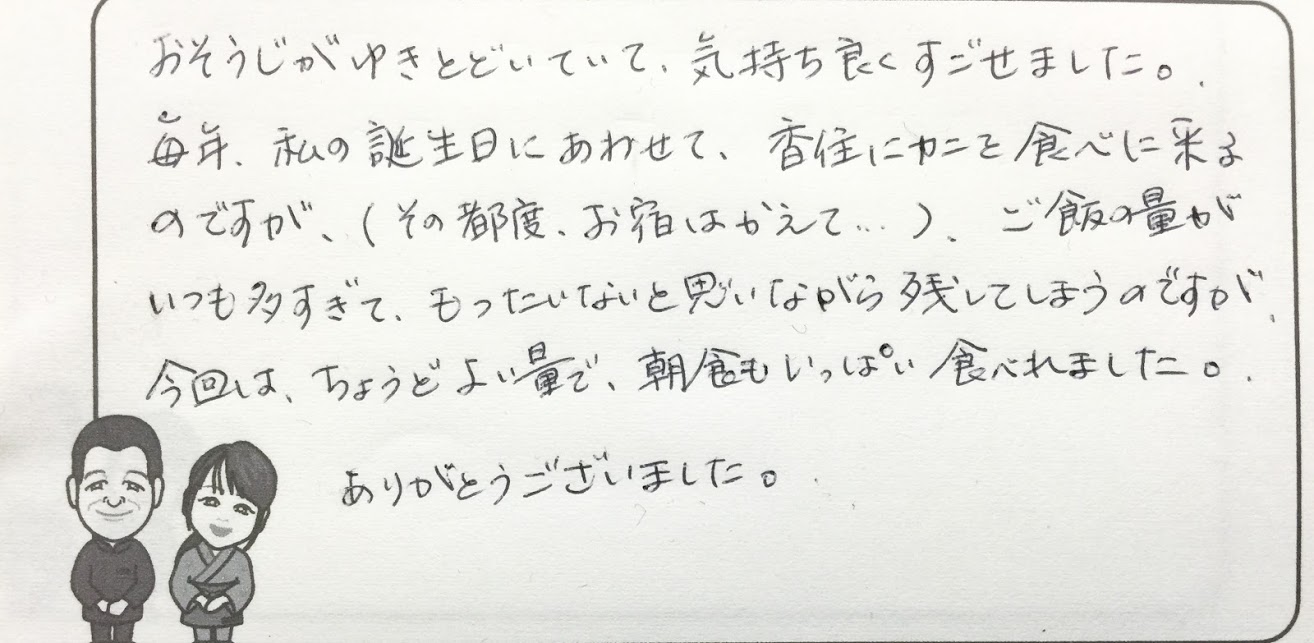 おそうじがゆきとどいていて、気持ち良くすごせました。
毎年、私の誕生日にあわせて、香住にカニを食べに来る
のですが、(その都度、お宿はかえて…)、ご飯の量が
いつも多すぎて、もったいないと思いながら残してしまうのですが、
今回は、ちょうどよい量で、朝食もいっぱい食べれました。
ありがとうございました。